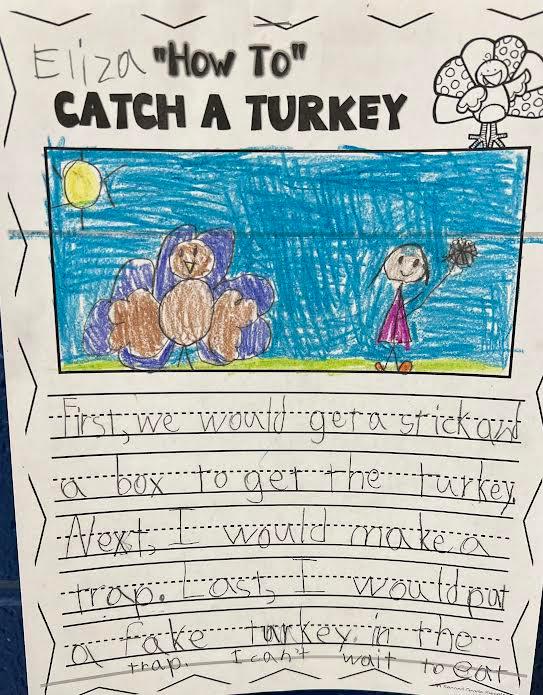 Eliza "How To"
CATCH A TURKEY
First, we would get a stick and
a box to get the turkey.
Next, I would make a
trap. Last, I would put
a fake turkey in the
trap. I can't wait to eat